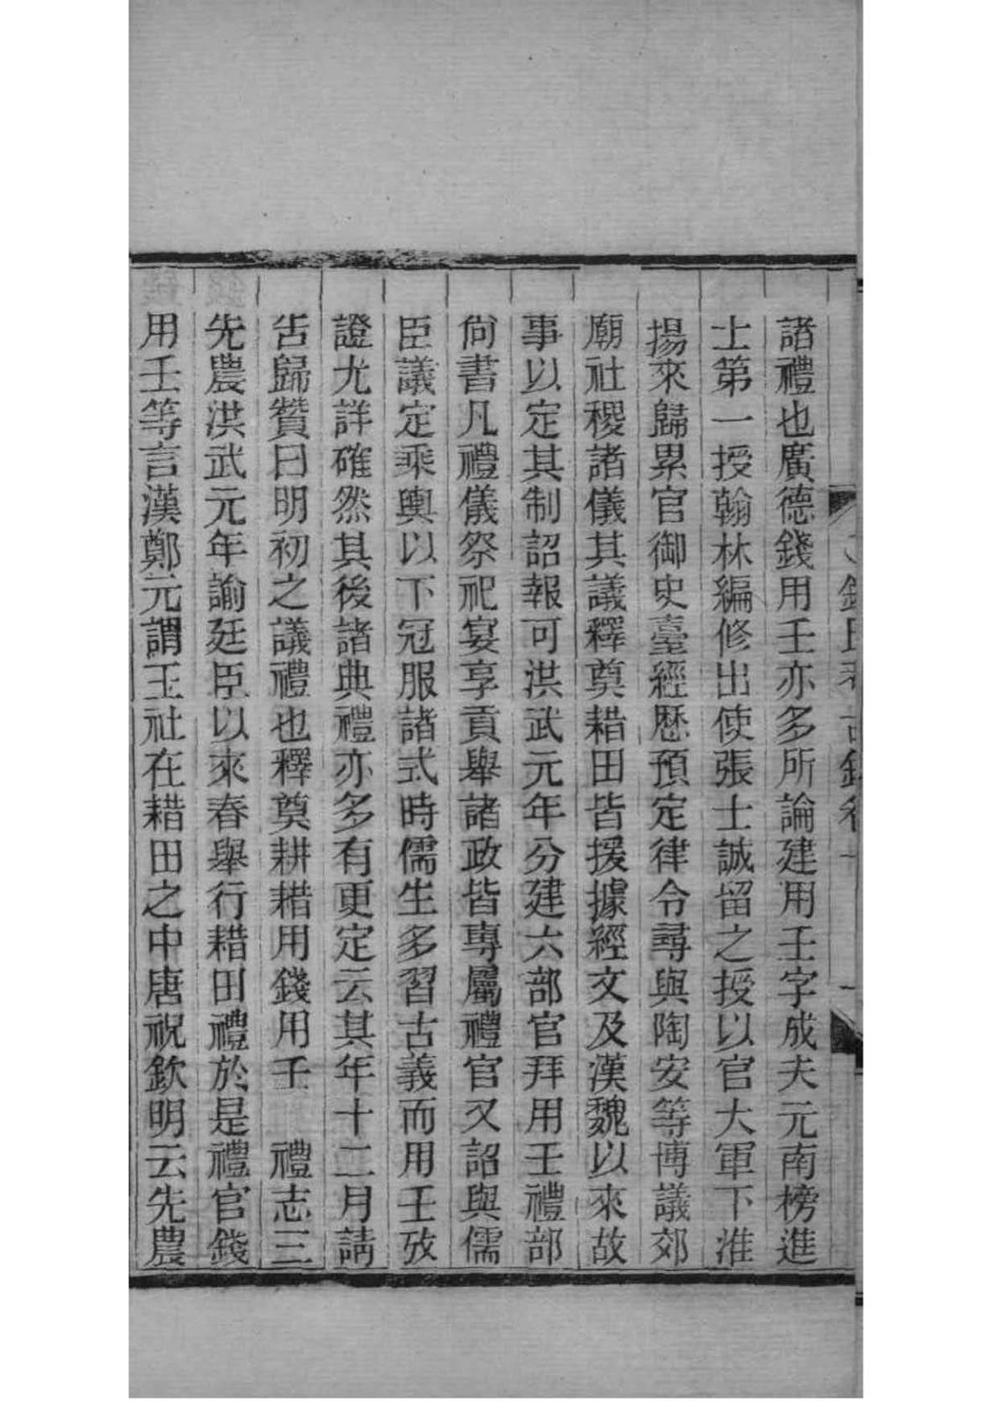 諸禮也廣德錢用壬亦多所論建用壬字成夫元南榜進
士第一授翰林編修出使張士誠留之授以官大軍下淮
揚來歸累官御史臺經歷預定律令尋與陶安等博議郊
廟社稷諸儀其議釋奠耤田皆援據經文及漢魏以來故
事以定其制詔報可洪武元年分建六部官拜用壬禮部
尙書凡禮儀祭祀宴享貢舉諸政皆專屬禮官又詔與儒
臣議定乘輿以下冠服諸式時儒生多習古義而用壬攷
證尤詳確然其後諸典禮亦多有更定云其年十二月請
告歸贊曰明初之議禮也釋奠耕耤用錢用壬　禮志三
先農洪武元年諭廷臣以來春舉行耤田禮於是禮官錢
用壬等言漢鄭元謂王社在耤田之中唐祝欽明云先農